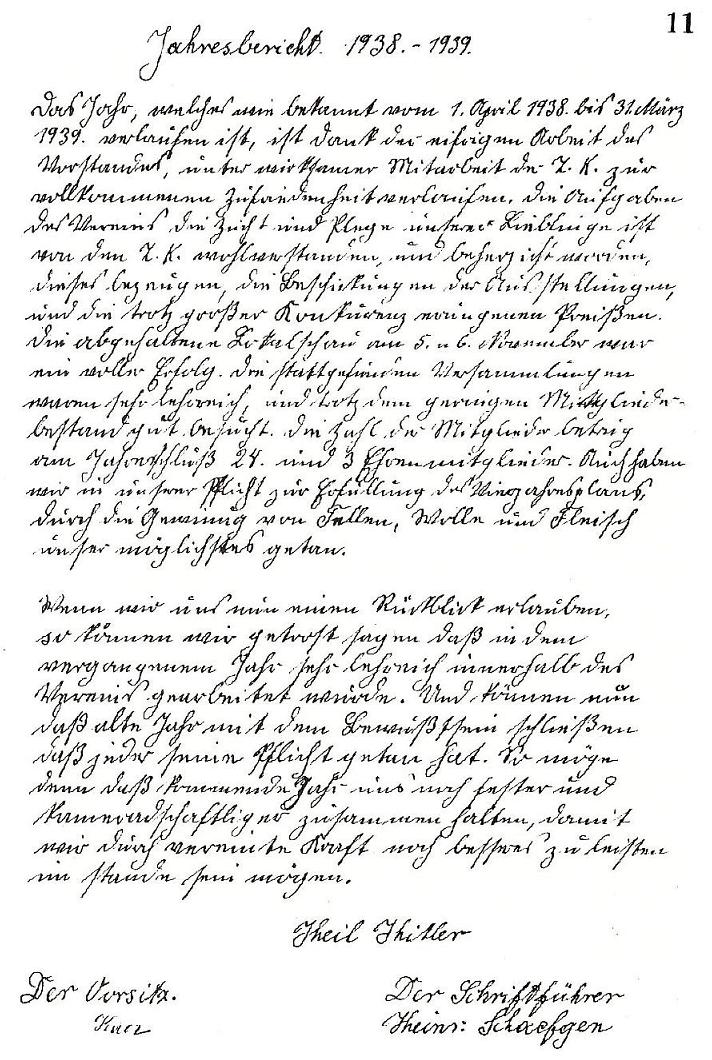 11
Jahresbericht 1938.-1939.
Das Jahr, welches wie bekannt vom 1. April 1938. bis 31. März
1939. verlaufen ist, ist dank der eifrigen Arbeit des
Vorstandes, unter wirksamer Mitarbeit der Z. K. zur
vollkommenen Zufriedenheit verlaufen. Die Aufgaben
des Vereins, die Zucht und Plege unserer Lieblinge ist
von den Z. K. wohlverstanden, und beherzicht worden,
dieses bezeugen, die Beschickungen der Ausstellungen,
und die trotz großer Konkurenz errungenen Preißen.
Die abgehaltene Lokalschau am 5. u 6. November war
ein voller Erfolg. Die stattgefunden Versammlungen
waren sehr lehrreich, und trotz dem geringen Mitglieder-
bestand gut besucht. Die Zahl der Mitglieder betrug
am Jahresschluß 24. und 3 Ehrenmitglieder. Auch haben
wir in unserer Pflicht zur Erfüllung des Vierjahresplans,
durch die Gewinnug von Fellen, Wolle und Fleisch
unser möglichstes getan.
Wenn wir uns nun einen Rückblick erlauben,
so können wir getrost sagen daß in dem
vergangenem Jahr sehr lehrreich innerhalb des
Vereins gearbeitet wurde. Und können nun
daß alte Jahr mit dem Bewußtsein schließen
daß jeder seine Pflicht getan hat. So möge
denn daß kommende Jahr uns noch fester und
kameradschaftliger zusammen halten, damit
wir durch vereinte Kraft noch besseres zu leisten
im stande sein mögen.
Heil Hitler
Der Vorsitz. Der Schriftführer
Kurz Heinr: Schaefgen